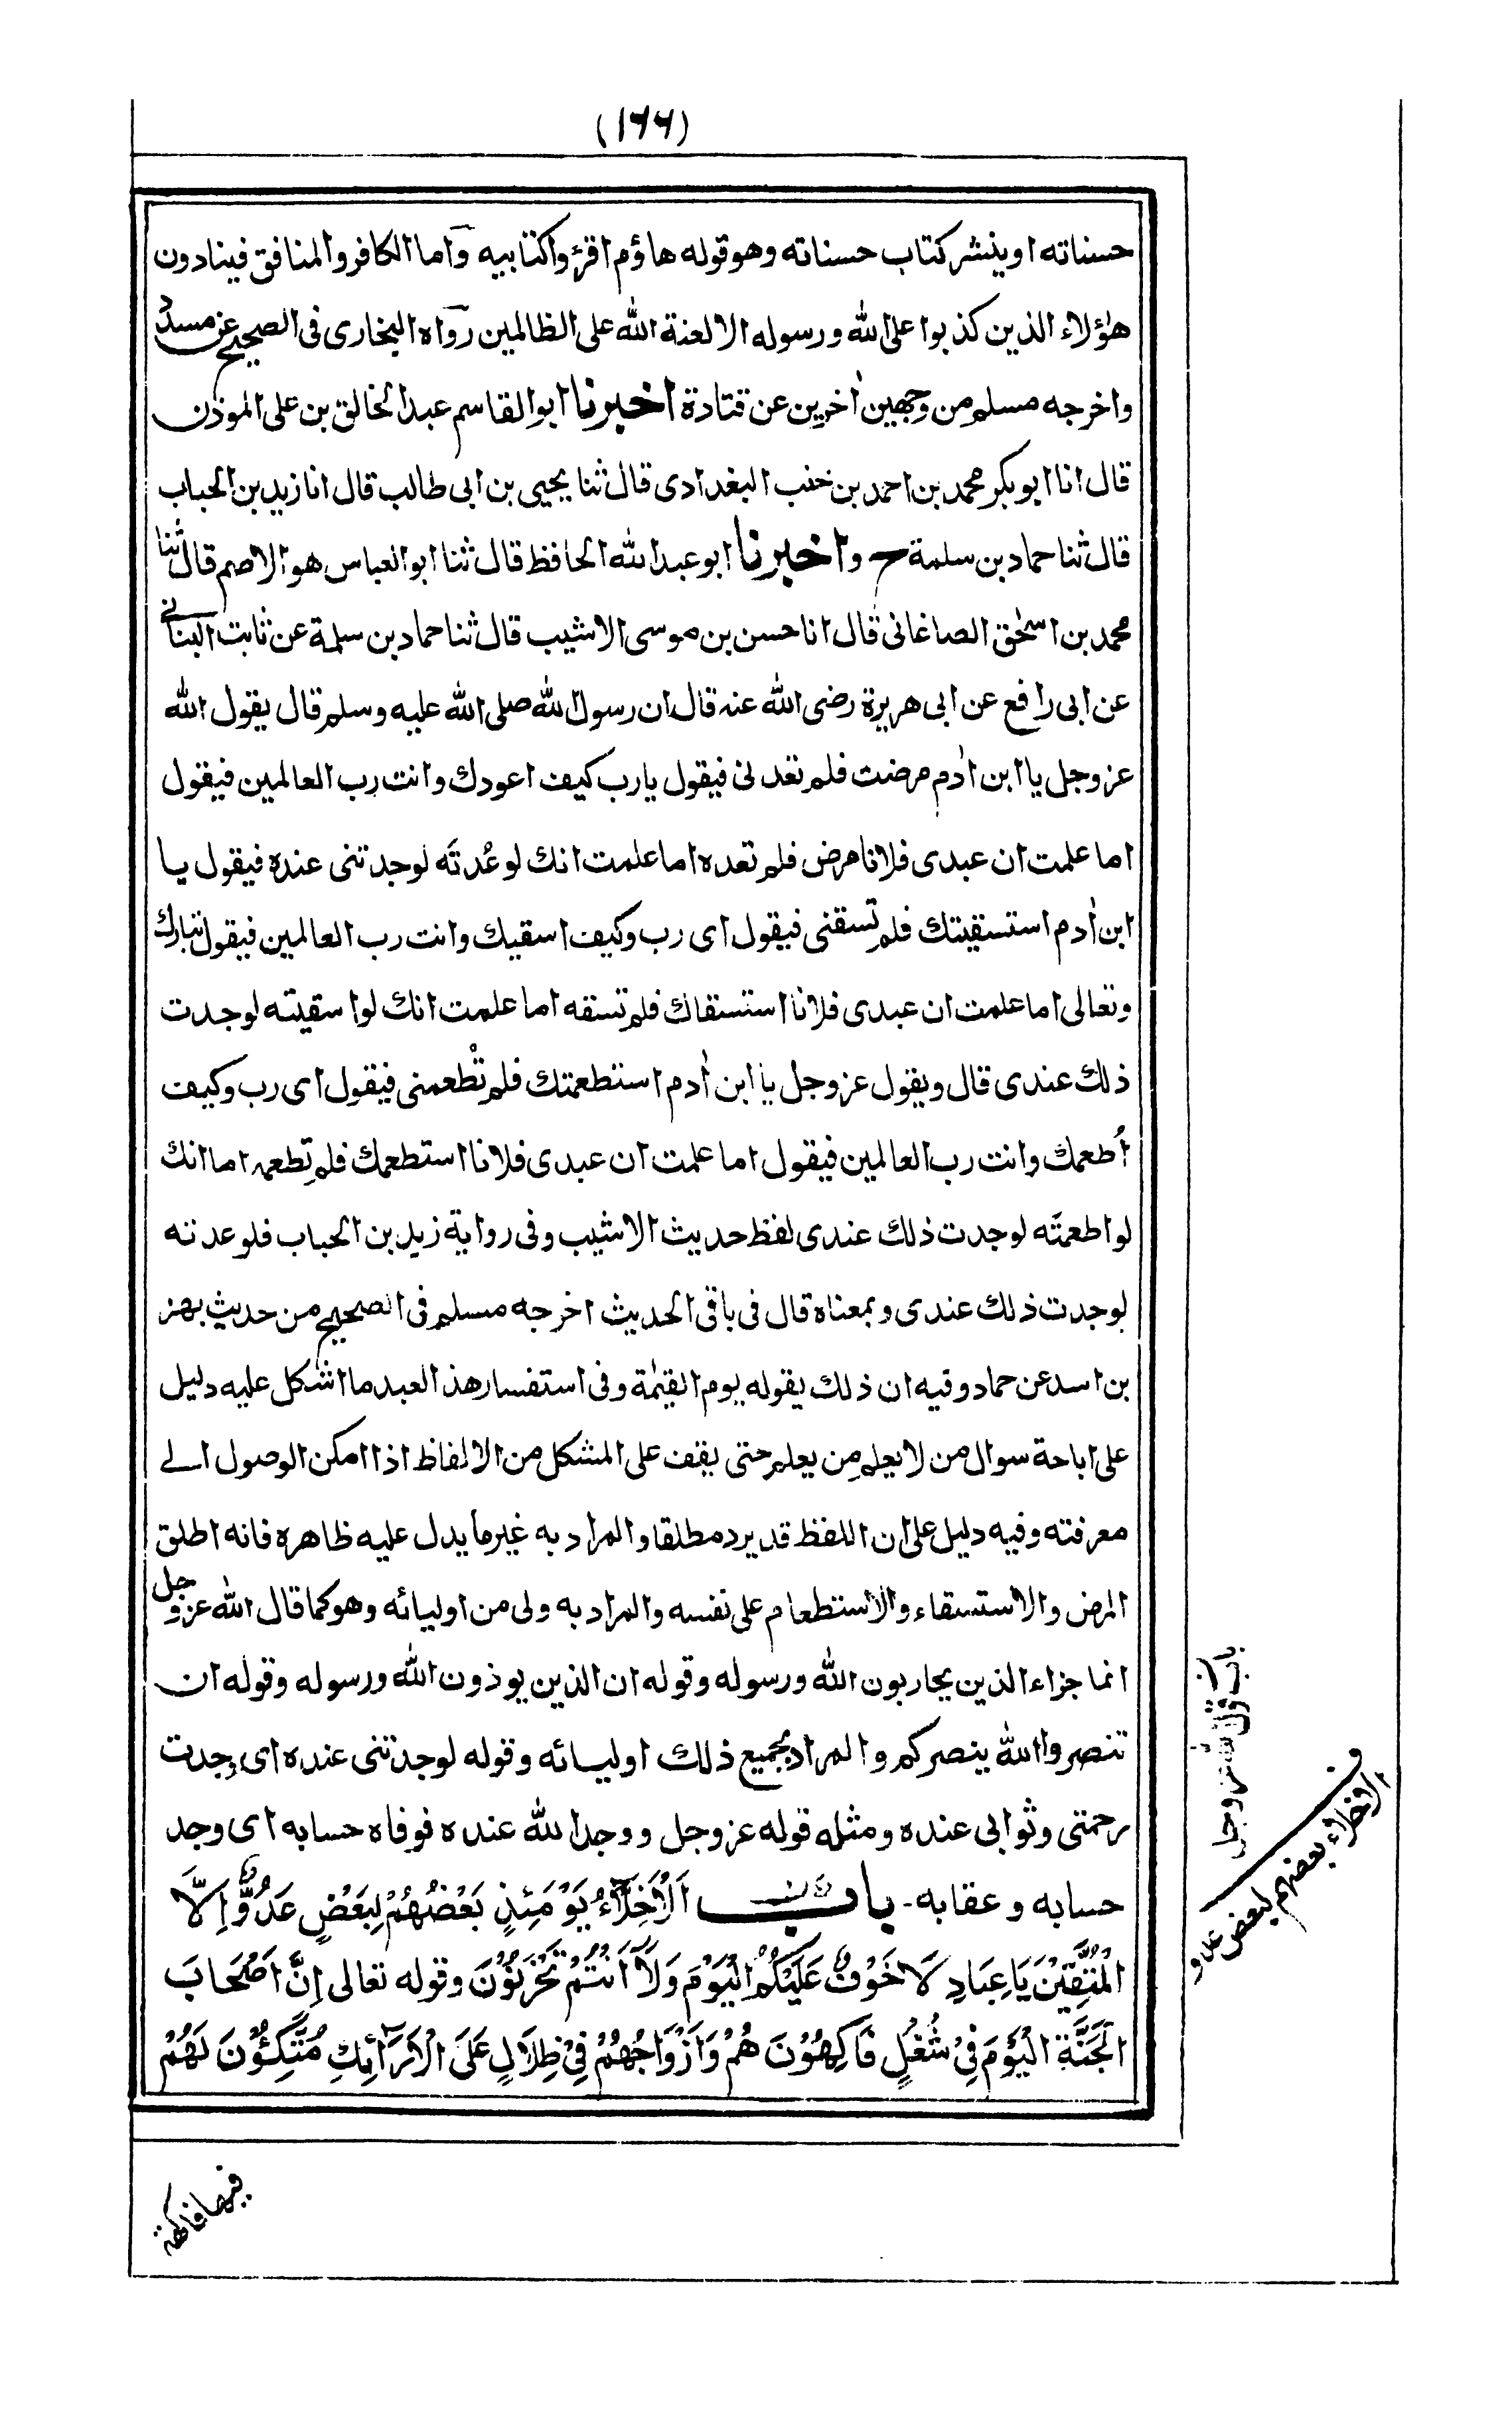 (١٦٦)
حسناته او ينشر كتاب حسناته وهو قوله هاؤم اقرؤا كتابيه وآما الكافر والمنافق فينادون
هؤلاء الذين كذبوا على الله ورسوله الا لعنة الله على الظالمين رواه البخارى فى الصحيح عن مسدد
واخرجه مسلم من وجهين اٰخرين عن قتادة اخبرنا ابوالقاسم عبدالخالق بن على الموذن
قال انا ابوبكر محمد بن احمد بن خنب البغدادى قال ثنا يحيى بن ابى طالب قال انا زيد بن الحباب
قال ثنا حماد بن سلمة ح واخبرنا ابوعبدالله الحافظ قال ثنا ابوالعباس هو الاصم قال ثنا
محمد بن اسحٰق الصاغانى قال انا حسن بن موسى الاشيب قال ثنا حماد بن سلمة عن ثابت البنانے
عن ابى رافع عن ابى هريرة رضى الله عنه قال ان رسول الله صلى الله عليه وسلم قال يقول الله
عزوجل يا ابن اٰدم مرضت فلم تعدنى فيقول يارب كيف اعودك وانت رب العالمين فيقول
اما علمت ان عبدى فلانا مرض فلم تعده اما علمت انك لو عُدتَه لوجدتنى عنده فيقول يا
ابن اٰدم استسقيتك فلم تسقنى فيقول اى رب وكيف اسقيك وانت رب العالمين فيقول تبارك
وتعالى اما علمت ان عبدى فلانا استسقاك فلم تسقه اما علمت انك لو اسقيته لوجدت
ذلك عندى قال ويقول عزوجل يا ابن اٰدم استطعمتك فلم تُطعمنى فيقول اى رب وكيف
اُطعمك وانت رب العالمين فيقول اما علمت ان عبدى فلانا استطعمك فلم تطعمه اما انك
لو اطعمتَه لوجدت ذلك عندى لفظ حديث الاشيب وفى رواية زيد بن الحباب فلو عدته
لوجدت ذلك عندى وبمعناه قال فى باقى الحديث اخرجه مسلم فى الصحيح من حديث بهز
بن اسد عن حماد وفيه ان ذلك يقوله يوم القيٰمة وفى استفسار هذ العبد ما اشكل عليه دليل
على اباحة سوال من لا يعلم مِن يعلم حتى يقف على المشكل من الالفاظ اذا امكن الوصول الے
معرفته وفيه دليل على ان اللفظ قد يرد مطلقا والمراد به غير ما يدل عليه ظاهره فانه اطلق
المرض والاستسقاء والاستطعام على نفسه والمراد به ولى من اوليائه وهو كما قال الله عزوجل
انما جزاء الذين يحاربون الله ورسوله وقوله ان الذين يوذون الله ورسوله وقوله ان
تنصروا الله ينصركم والمراد بجميع ذلك اوليائه وقوله لوجدتنى عنده اى وجدت
رحمتى وثوابى عنده ومثله قوله عزوجل ووجد الله عنده فوفاه حسابه اى وجد
حسابه وعقابه- باب اَلْاَخِلَّآءُ يَوْمَئِذٍ بَعْضُهُمْ لِبَعْضٍ عَدُوٌّ اِلَّا
الْمُتَّقِيْنَ يَاعِبَادِ لَاخَوْفٌ عَلَيْكُمُ الْيَوْمَ وَلَآ اَنْتُمْ تَحْزَنُوْنَ وقوله تعالى اِنَّ اَصْحَابَ
الْجَنَّةِ الْيَوْمَ فِىْ شُغُلٍ فَاكِهُوْنَ هُمْ وَاَزْوَاجُهُمْ فِىْ ظِلَالٍ عَلَى الْاَرَآئِكِ مُتَّكِئُوْنَ لَهُمْ
باب فى قول الله عزوجل
الاخلاء بعضهم لبعض عدو
فيها فاكهة